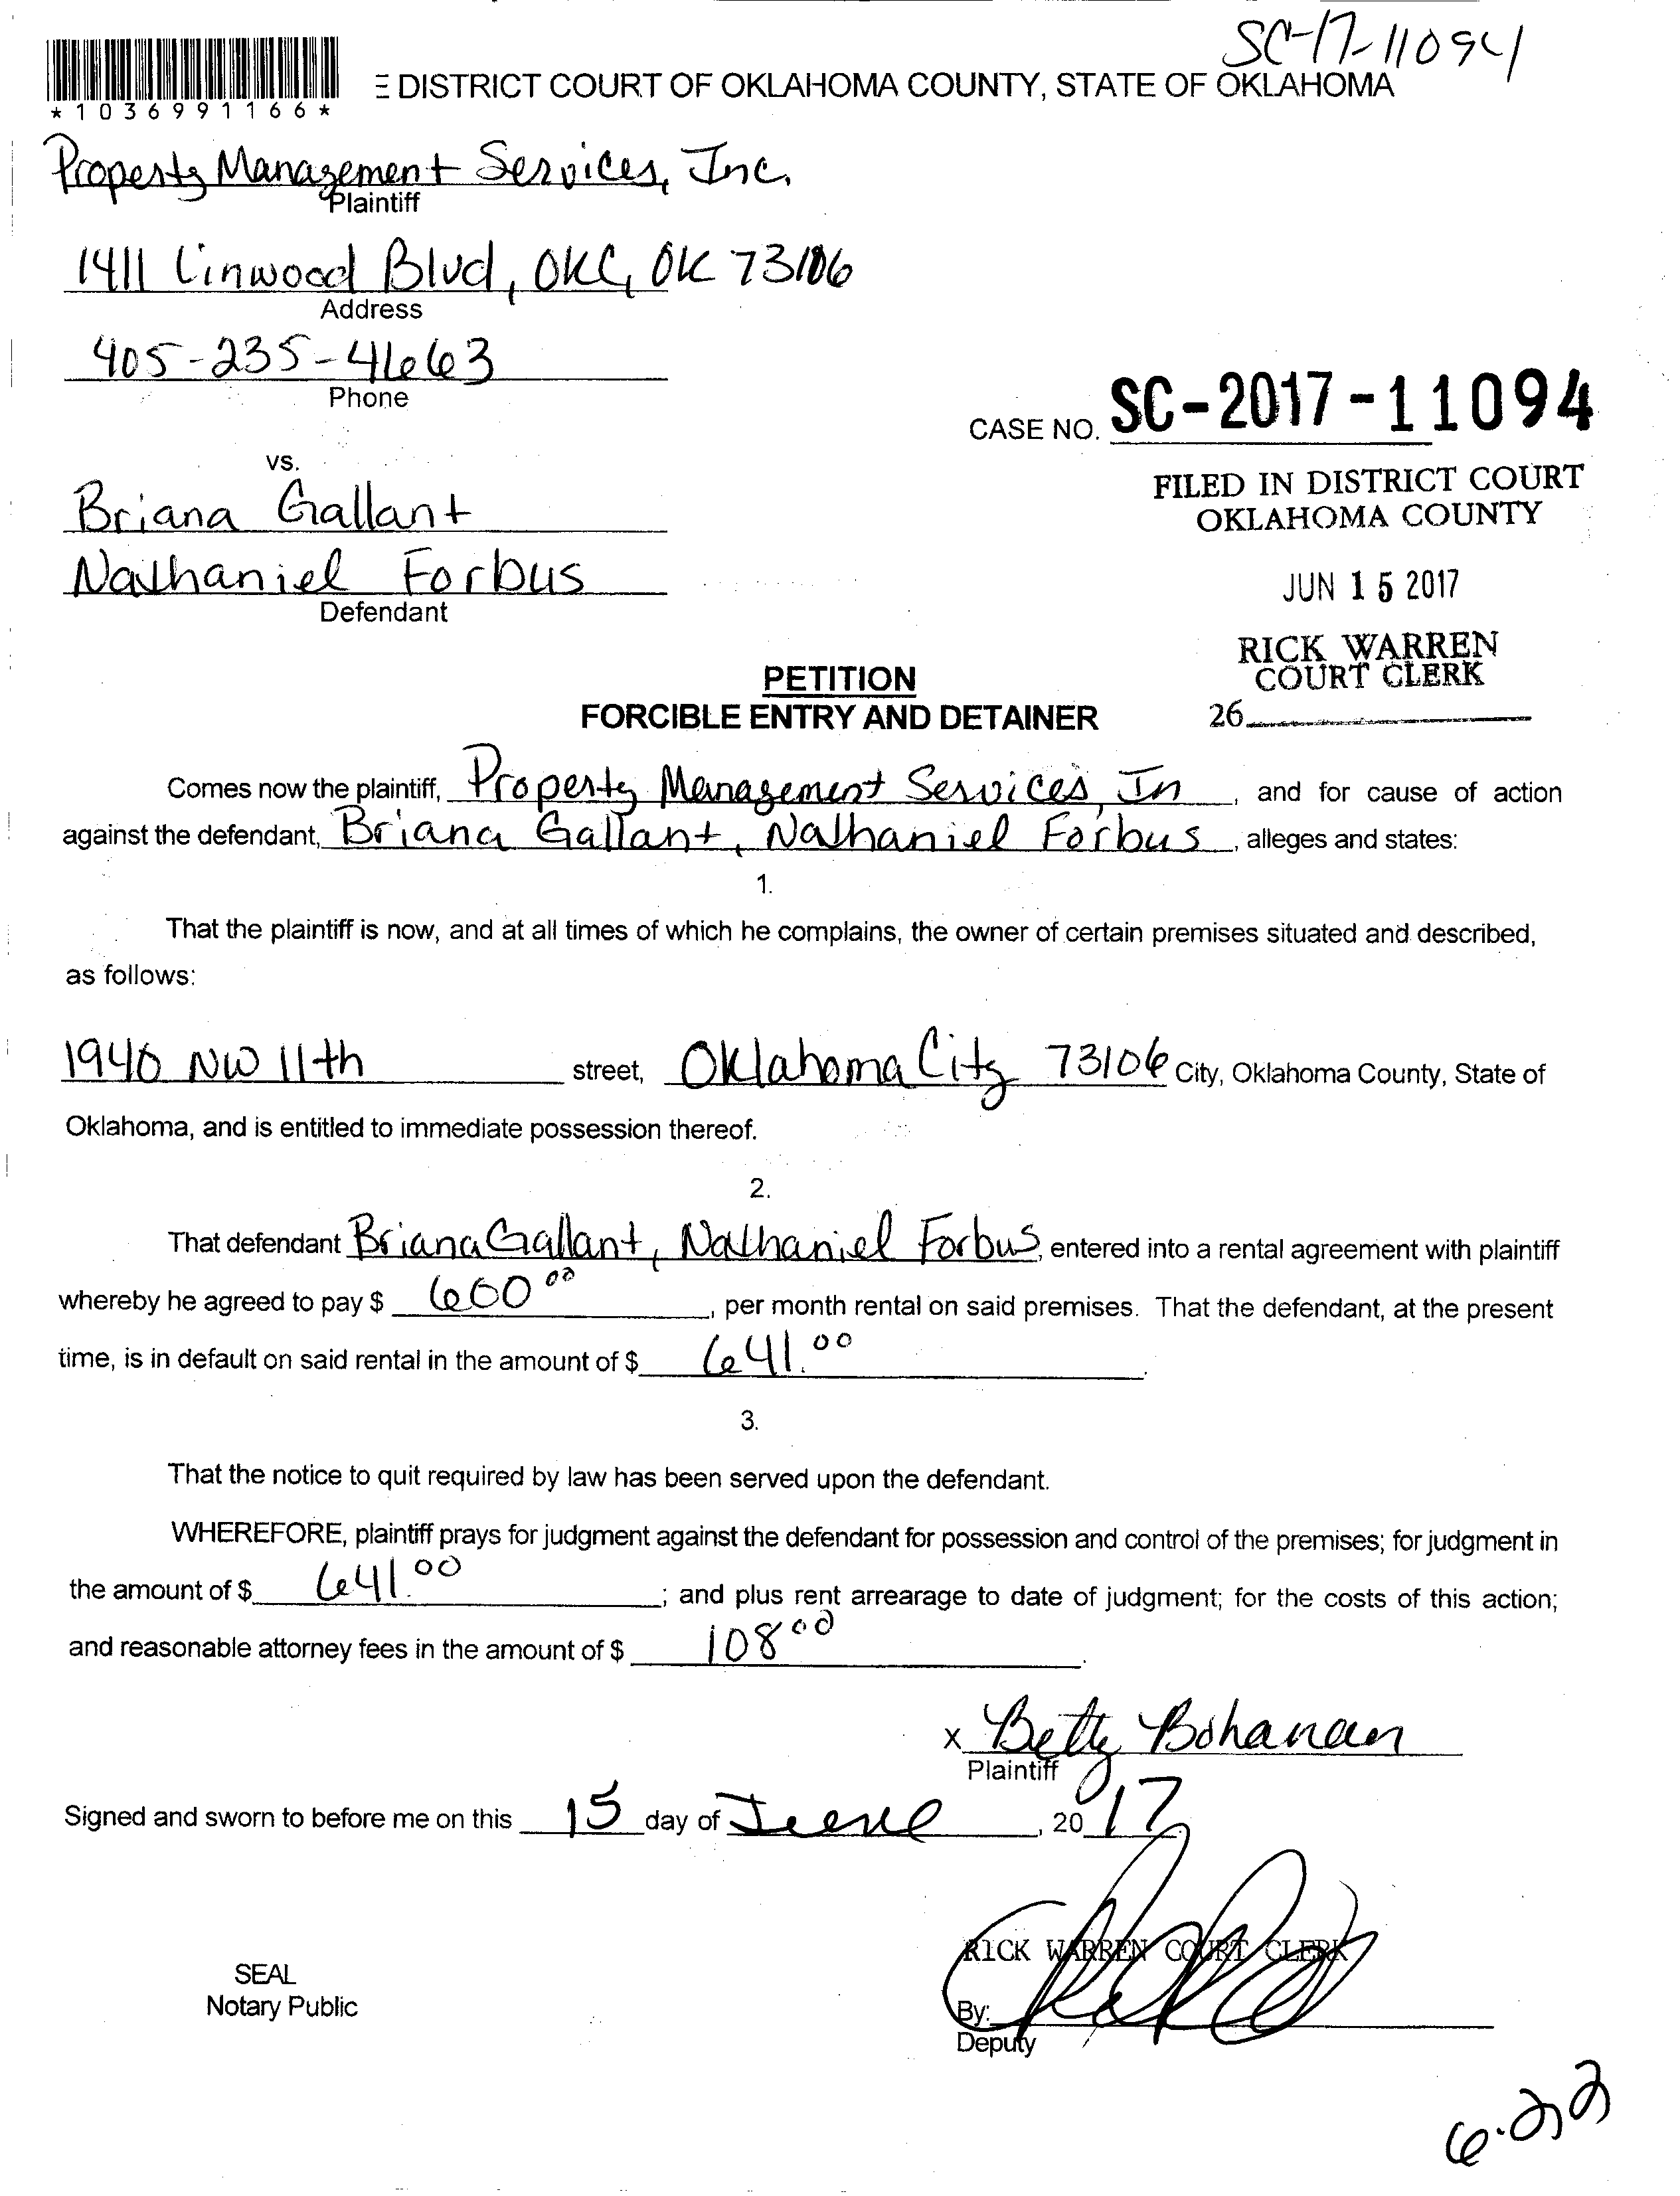 SC-17-11094
*1036991166*
E DISTRICT COURT OF OKLAHOMA COUNTY, STATE OF OKLAHOMA
Property Management Services, Inc.
Plaintiff
1411 Linwood Blvd, OKC, OK 73106
Address
405-235-4663
Phone
CASE NO. SC-2017-11094
vs.
FILED IN DISTRICT COURT
OKLAHOMA COUNTY
Briana Gallant
Nathaniel Forbus
Defendant
JUN 15 2017
RICK WARREN
COURT CLERK
26
PETITION
FORCIBLE ENTRY AND DETAINER
Comes now the plaintiff, Property Management Services, In, and for cause of action
against the defendant, Briana Gallant, Nathaniel Forbus, alleges and states:
1.
That the plaintiff is now, and at all times of which he complains, the owner of certain premises situated and described,
as follows:
1940 NW 11th street, Oklahoma City 73106 City, Oklahoma County, State of
Oklahoma, and is entitled to immediate possession thereof.
2.
That defendant Briana Gallant, Nathaniel Forbus, entered into a rental agreement with plaintiff
whereby he agreed to pay $ 600 00, per month rental on said premises. That the defendant, at the present
time, is in default on said rental in the amount of $ 641.00.
3.
That the notice to quit required by law has been served upon the defendant.
WHEREFORE, plaintiff prays for judgment against the defendant for possession and control of the premises; for judgment in
the amount of $ 641.00; and plus rent arrearage to date of judgment; for the costs of this action;
and reasonable attorney fees in the amount of $ 108 00.
x Betty Bohanan
Plaintiff
Signed and sworn to before me on this 15 day of June, 20 17.
RICK WARREN COURT CLERK
SEAL
Notary Public
By:
Deputy
6-22